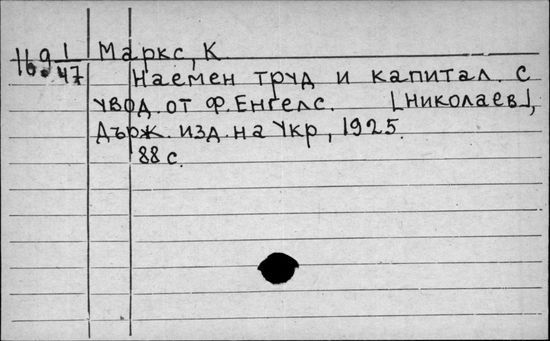 16.9 1/47 Маркс, К
Наемен труд и капитал. с
увод. от Ф. Енгелс. [Николаев],
Държ. изд. на Укр, 1925.
88 с.